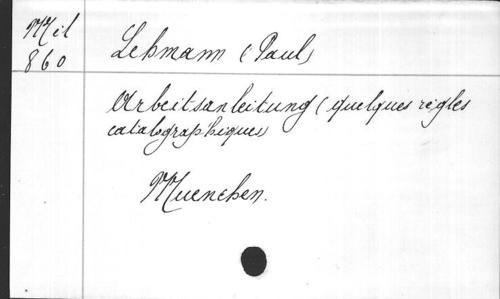 Mil
860
Lehmann (Paul)
Arbeitsanleitung (quelques règles
catalographiques
Muenchen.